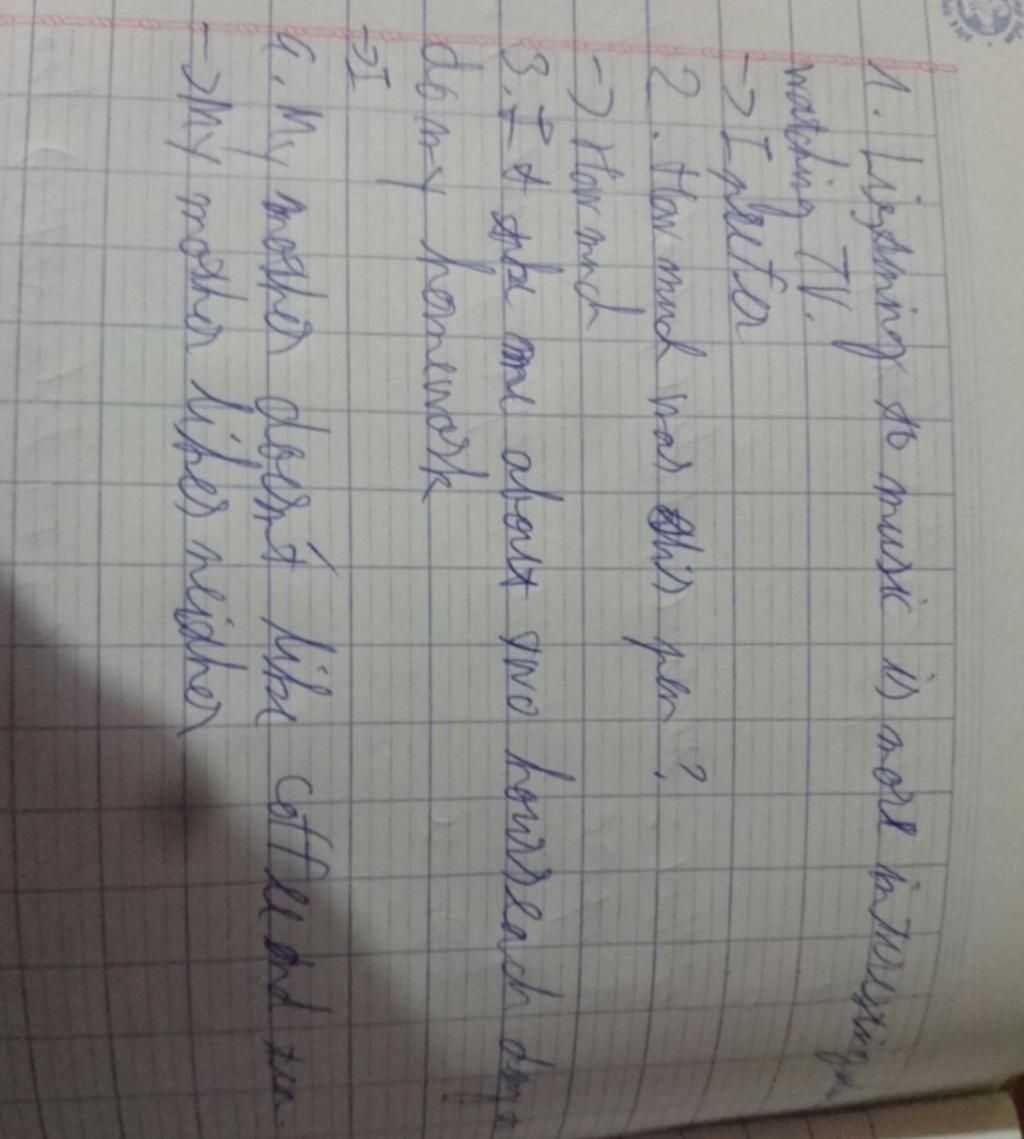 1. Listening to music is more interesting
watching TV.
→ I prefer
2. How much was this pen?
→ How much
3. It take me about two hours each day
do my homework
→ I
4. My mother doesn't like coffee and tea.
→ My mother likes neither